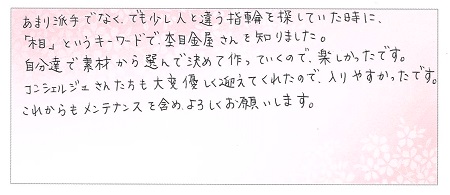 あまり派手でなく、でも少し人と違う指輪を探していた時に、
「木目」というキーワードで、杢目金屋さんを知りました。
自分達で素材から選んで決めて作っていくので、楽しかったです。
コンシェルジュさんたちも大変優しく迎えてくれたので、入りやすかったです。
これからもメンテナンスを含め、よろしくお願いします。